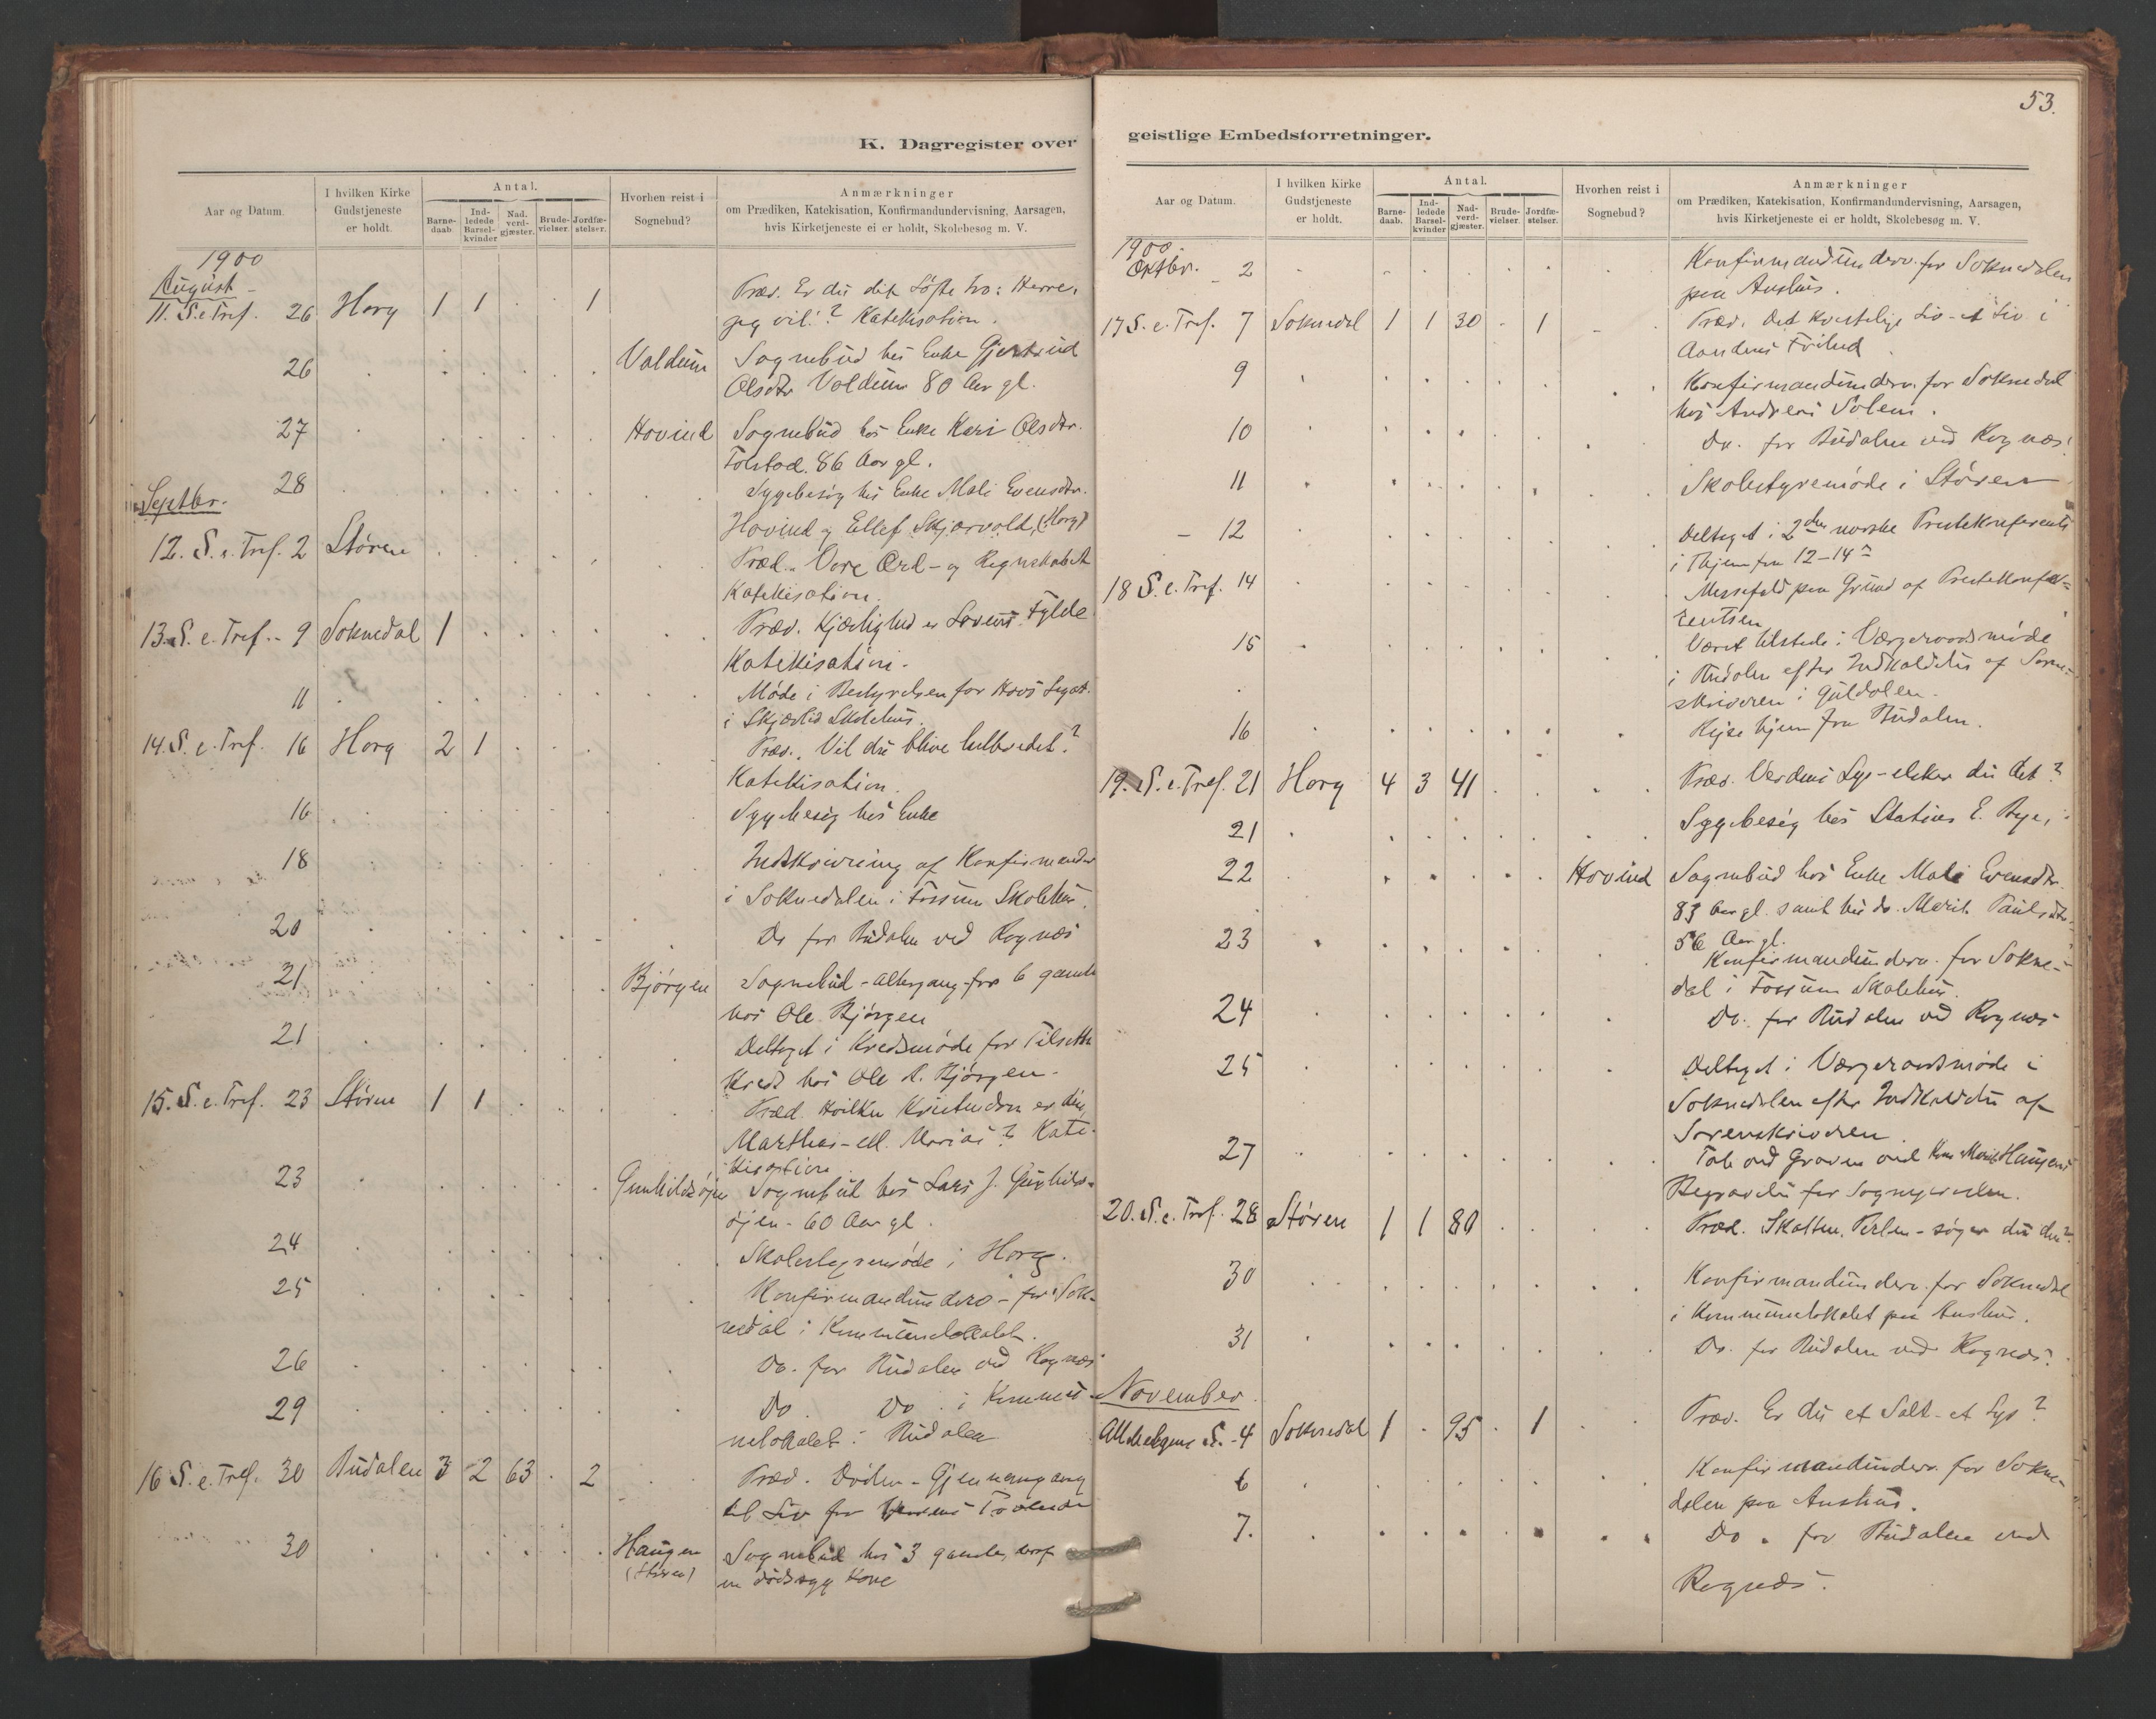 53.
K. Dagregister over
geistlige Embedsforretninger.
Aar og Datum.
I hvilken Kirke
Gudstjeneste
er holdt.
Antal.
Barne-
daab
Ind-
ledede
Barsel-
kvinder
Nad.
verd-
gjæster.
Brude-
vielser.
Jordfæ-
stelser.
Hvorhen reist i
Sognebud?
Anmærkninger
om Prædiken, Katekisation, Konfirmandundervisning, Aarsagen,
hvis Kirketjeneste ei er holdt, Skolebesøg m. V.
1900
August
11. S. e. Tref. 26 Horg 1 1 1 Præd. Er du dit Løfte tro: Herre,
jeg vil!? Katekisation.
26 Valdum Sognebud hos Enke Gjertrud
Olsdtr Valdum 80 Aar gl.
27 Hovind Sognebud hos Enke Kari Olsdtr.
86 Aar gl.
28 Sygebesøg hos Enke Mali Evensdtr.
Hovind og Ellef Skjærvold, (Horg)
Septbr.
12. S. e. Tref. 2 Støren Præd. Vore Ord - og Regnskabet
Katekisation.
13. S. e. Tref. 9 Soknedal 1 Præd. Kjærlighed er Lovens Fylde
Katekisation.
11 Møde i Bestyrelsen for Hovs Legat
i Skjærlid Skolehus.
14. S. e. Tref. 16 Horg 2 1 Præd. Vil du blive helbredet?
Katekisation.
16 Sygebesøg hos Enke
18 Indskrivning af Konfirmander
i Soknedalen i Fossum Skolehus.
20 Do for Budalen ved Rognæs
21 Bjørgen Sognebud - altergang for 6 gamle
hos Ole Bjørgen
21 Deltaget i Kredsmøde for
Kreds hos Ole R. Bjørgen.
15. S. e. Tref. 23 Støren 1 1 Præd. Hvilken Kristendom er din,
Marthas - ell. Marias? Kate-
kisation
23 Gunhildsøjen Sognebud hos Lars J. Gunhilds-
øjen - 60 Aar gl.
24 Skolestyremøde i Horg.
25 Konfirmandunderv. for Sok-
nedal i Kommunelokalet.
26 Do. for Budalen ved Rognæs
29 Do. Do. i Kommu-
nelokalet i Budalen
16 S. e. Tref. 30 Budalen 3 2 63 2 Præd. Døden - Gjennemgang
til Liv for Troende
30 Haugen Sognebud hos 3 gamle, deraf
(Støren) en dødssyg Kone
Aar og Datum.
I hvilken Kirke
Gudstjeneste
er holdt.
Antal.
Barne-
daab.
Ind-
ledede
Barsel-
kvinder
Nad-
verd-
gjæster.
Brude-
vielser.
Jordfæ-
stelser.
Hvorhen reist i
Sognebud?
Anmærkninger
om Prædiken, Katekisation, Konfirmandundervisning, Aarsagen,
hvis Kirketjeneste ei er holdt, Skolebesøg m. V.
1900
Oktbr. 2 Konfirmandunderv. for Soknedalen
paa Anshus.
17 S. e. Tref. 7 Soknedal 1 1 30 1 Præd. Det kristelige Liv - et Liv i
Aandens Frihed
9 Konfirmandunderv. for Soknedal
hos Andreas Solem.
10 Do. for Budalen ved Rognæs.
11 Skolestyremøde i Støren
12 Deltaget i 2den norske Prestekonferents
i Thjem fra 12-14de
18 S. e. Tref. 14 Messefald paa Grund af Prestekonfe-
rentsen
15 Været tilstede i Værgeraadsmøde
i Budalen efter Indkaldelse af Soren-
skriveren i Guldalen.
16 Rejse hjem fra Budalen.
19. S. e. Tref. 21 Horg 4 3 41 Præd. Verdens Lys - elsker du det?
21 Sygebesøg hos Statius E. Bye,
22 Hovind Sognebud hos Enke Mali Evensdtr.
83 Aar gl. samt hos do. Marit Paulsdtr.
56 Aar gl.
23 Konfirmandunderv. for Sokne-
dal i Fossum Skolehus.
24 Do. for Budalen ved Rognæs
25 Deltaget i Værgeraadsmøde i
Soknedalen efter Indkaldelse af
Sorenskriveren.
27 Tale ved Graven ved Kone Marit Haugens
Begravelse for Sognepresten.
20. S. e. Tref. 28 Støren 1 1 80 Præd. Skatten, Perlen - søger du den?
30 Konfirmandunderv. for Soknedal
i Kommunelokalet paa Anshus.
31 Do. for Budalen ved Rognæs.
November
Allehelgens S. 4 Soknedal 1 95 1 Præd. Er du et Salt - et Lys?
6 Konfirmandunderv. for Sokne-
dalen paa Anshus.
7. Do. for Budalen ved
Rognæs.